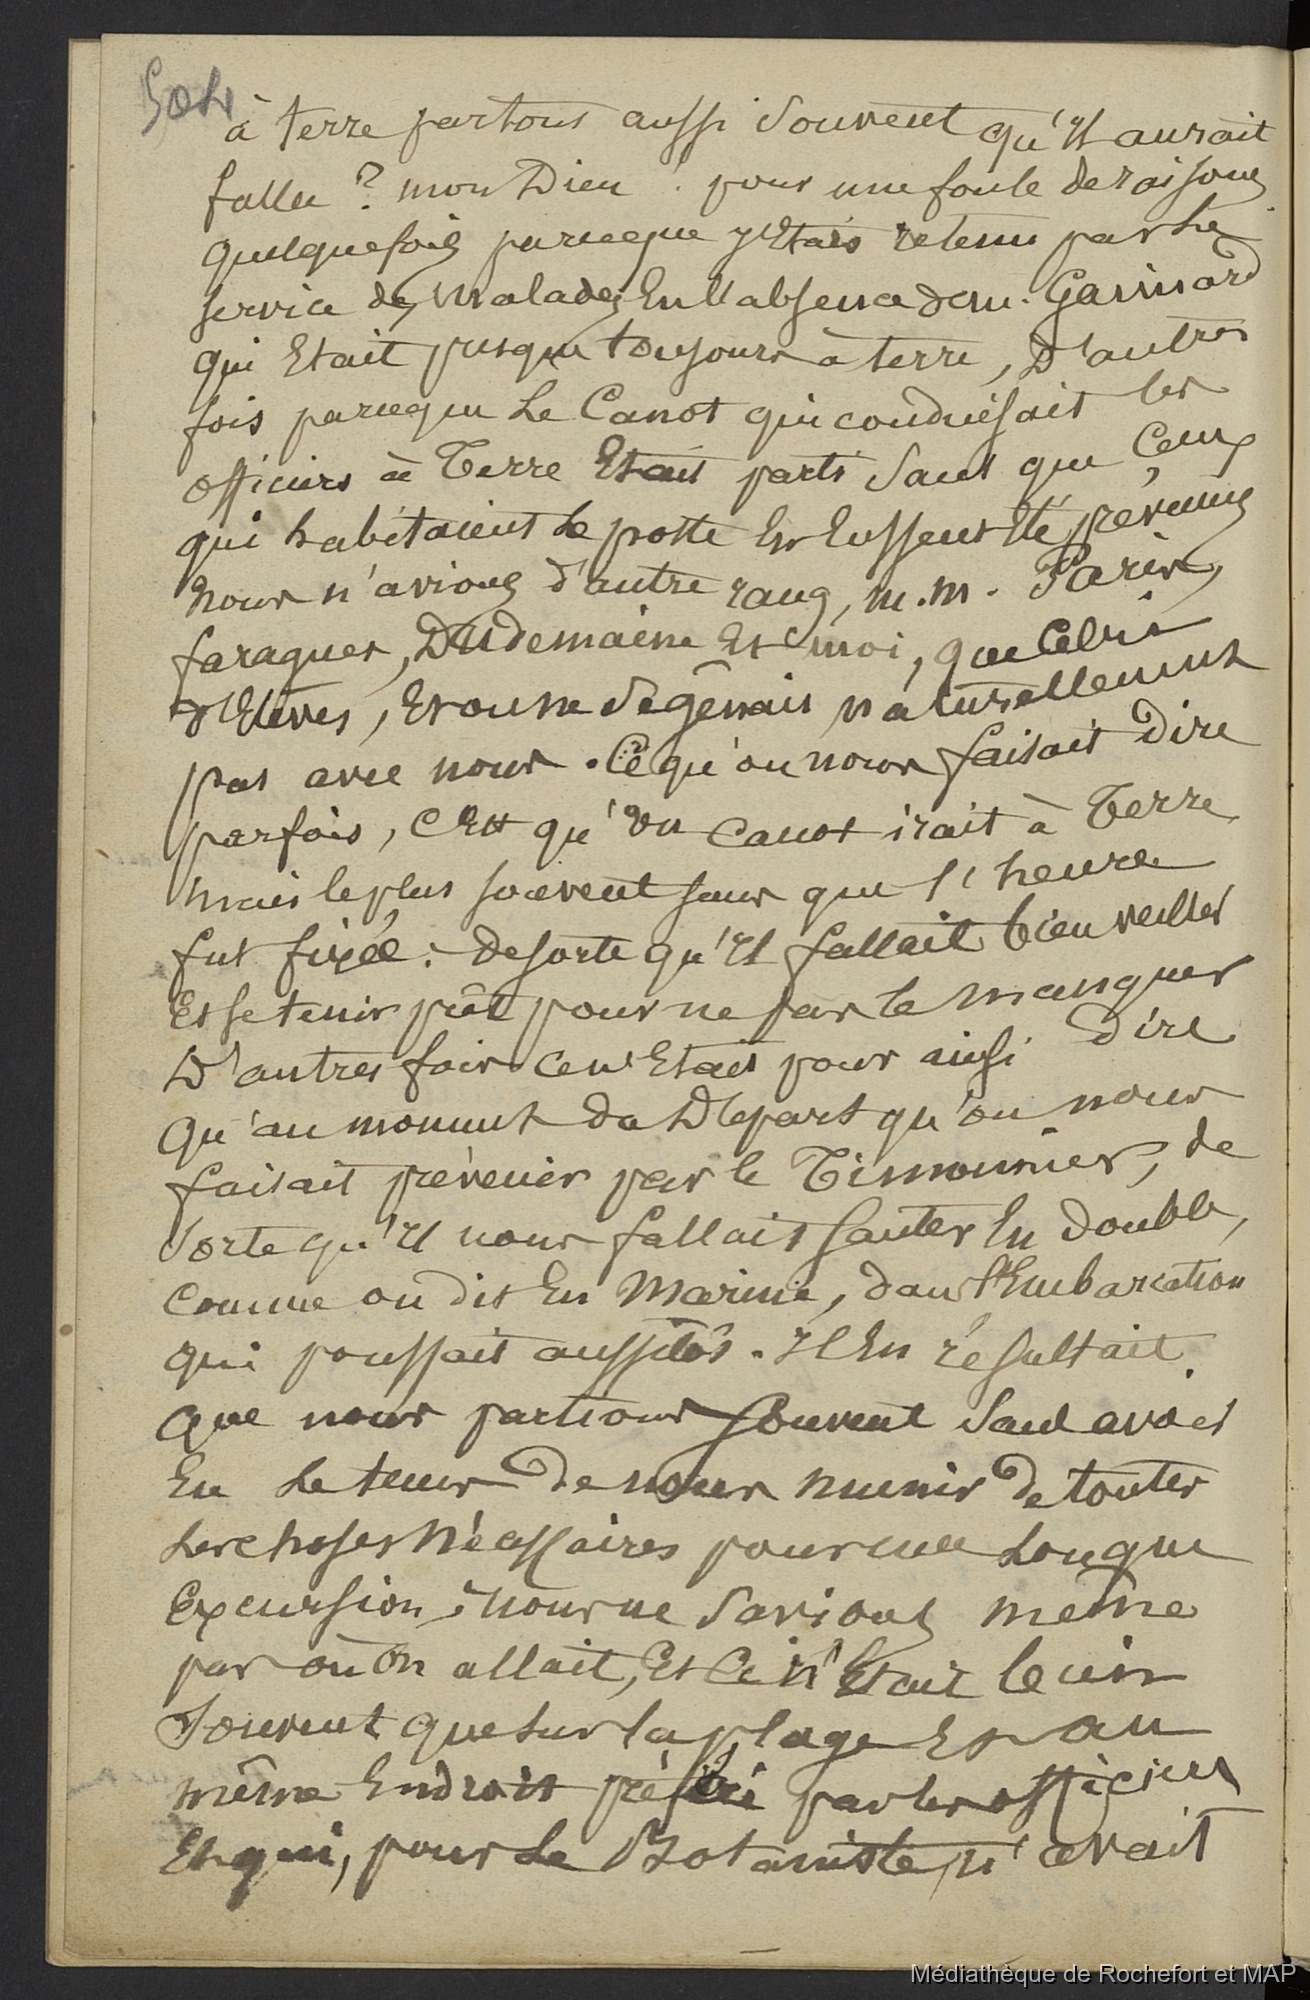 504
à terre partous aussi souvent qu'il aurait
fallu ? mon Dieu ! pour une foule de raisons
quelquefois parceque j'Etais retenu par Le
service des Malades En l'absence de m. Gaimard
qui Etait presque toujours à terre, D'autres
fois parceque Le Canot qui conduisait les
officiers à Terre Etait parti sans que Ceux
qui habitaient Le poste En Eussent Eté prévenus
nous n'avions d'autre rang, m.m. Paris,
faraguet, Dudemaine Et moi, que Celui
d'Elèves, Et on ne se gênait naturellement
pas avec nous. Ce qu'on nous faisait Dire
parfois, c'Est qu'un canot irait à Terre
mais le plus souvent sans que l'heure
fut fixée : de sorte qu'il fallait bien veiller
Et se tenir prêt pour ne pas le manquer
D'autres fois ce n'Etait pour ainsi Dire
Qu'au moment du Départ qu'on nous
faisait prévenir par le Timonnier, de
sorte qu'il nous fallait sauter En double,
comme on dit En Marine, dans l'Embarcation
qui poussait aussitôt. Il En résultait
que nous partions souvent sans avoir
Eu Le tems De nous munir De toutes
Les choses Nécessaires pour une Longue
Excursion ; Nous ne savions même
pas où On allait, Et Ce n'Etait bien
souvent que sur la plage Et au
même Endroit préféré par les officiers
Et qui, pour Le Botaniste, n'avait
Médiathèque de Rochefort et MAP